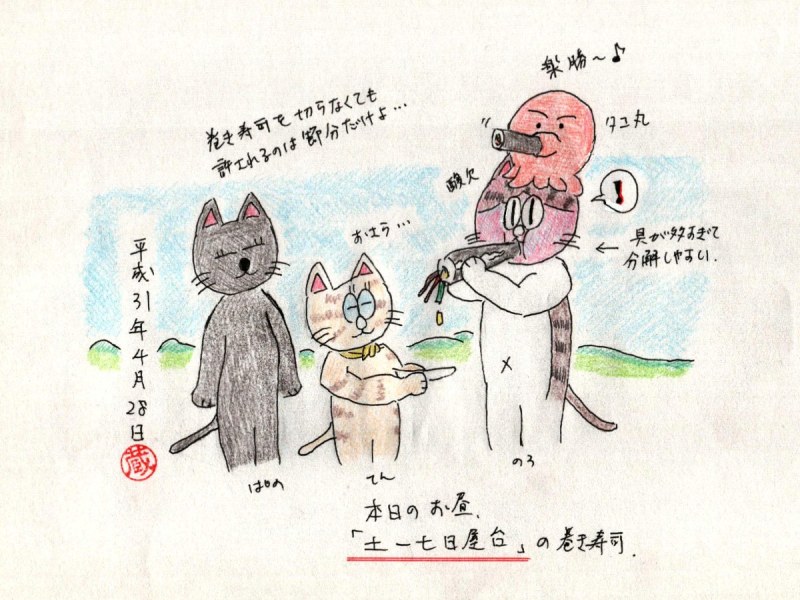 楽勝〜♪
タコ丸
巻き寿司を切らなくても
許されるのは節分だけよ…
酸欠
!
おさら…
← 具が多すぎて
分解しやすい.
平成31年4月28日
蔵
ぱの
てん
のろ
本日のお昼、
「土一七日屋台」の巻き寿司.